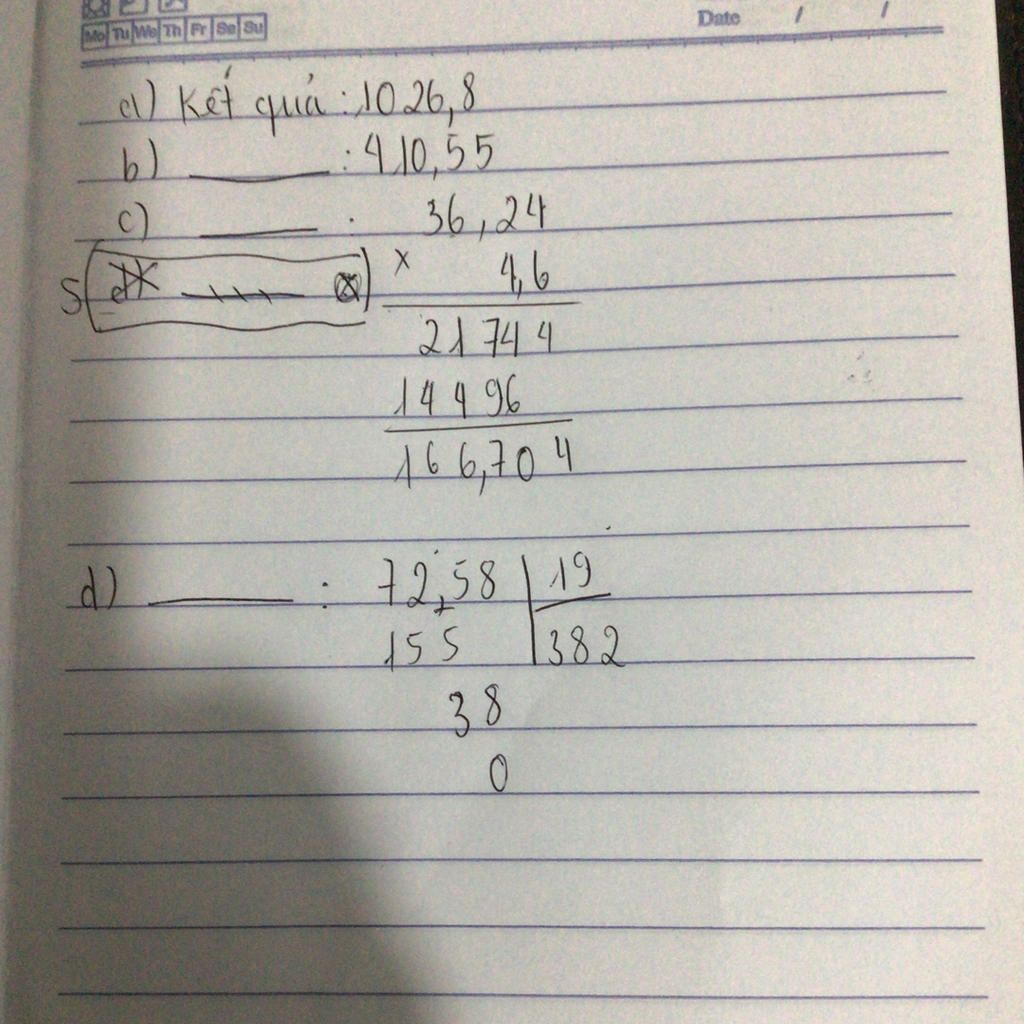 Mo Tu We Th Fr Sa Su
Date / /
a) Kết quả : 1026,8
b) ———— : 410,55
c) ———— : 36,24
S
× 4,6
21744
14496
166,704
d) ———— : 72,58 | 19
155 | 382
38
0